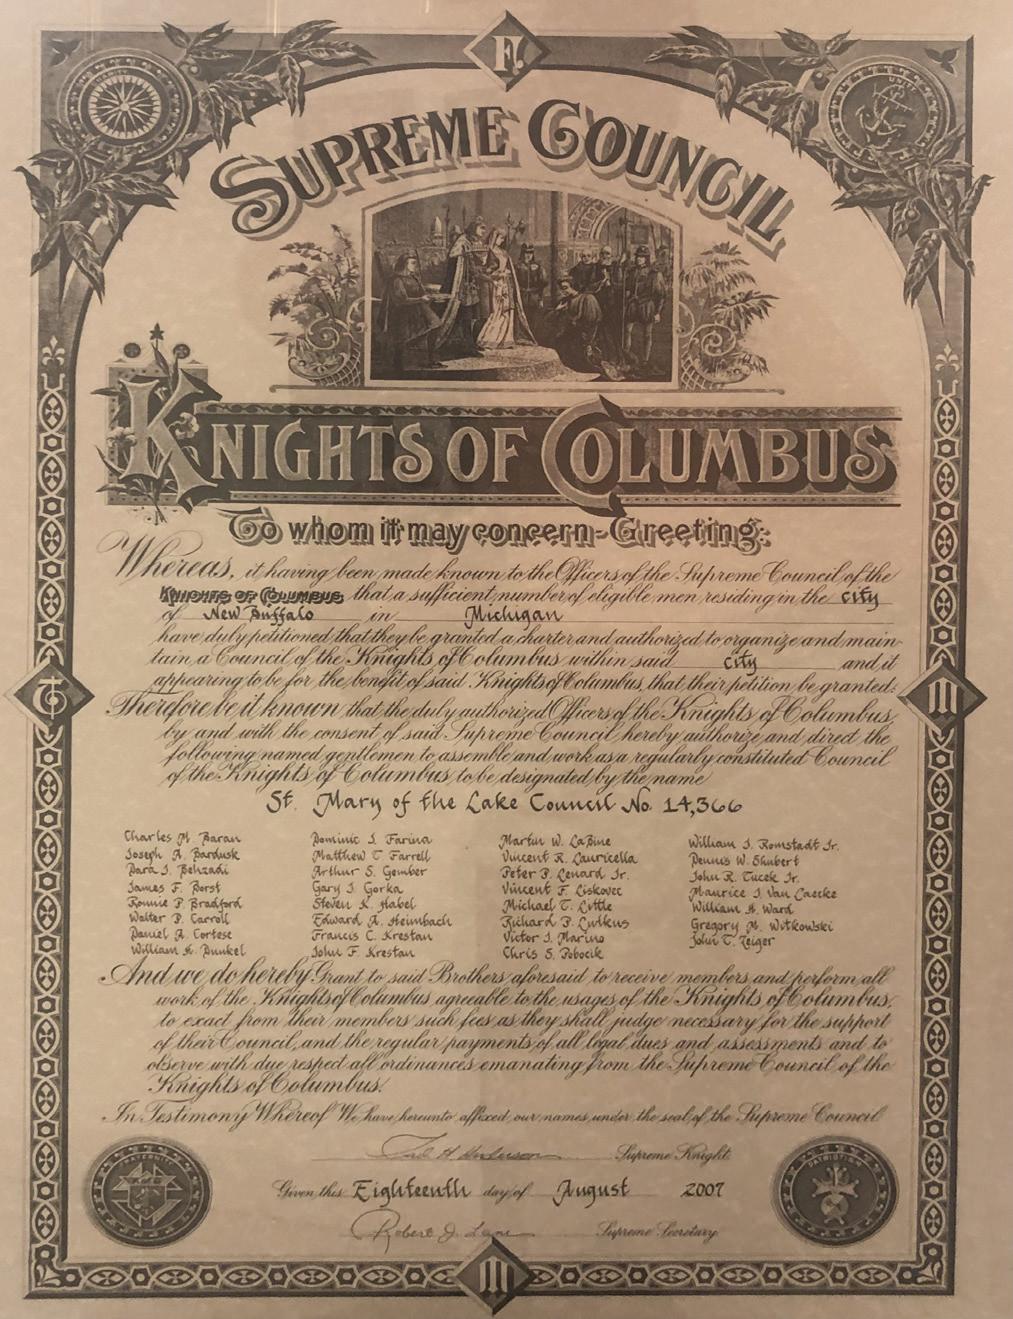 F.
CHARITY
UNITY
SUPREME COUNCIL
KNIGHTS OF COLUMBUS
To whom it may concern - Greeting:
Whereas, it having been made known to the Officers of the Supreme Council of the
KNIGHTS OF COLUMBUS that a sufficient number of eligible men residing in the city
of New Buffalo in Michigan
have duly petitioned that they be granted a charter and authorized to organize and main-
tain a Council of the Knights of Columbus within said city and it
appearing to be for the benefit of said Knights of Columbus, that their petition be granted:
Therefore be it known that the duly authorized Officers of the Knights of Columbus,
by and with the consent of said Supreme Council hereby authorize and direct the
following named gentlemen to assemble and work as a regularly constituted Council
of the Knights of Columbus, to be designated by the name
St. Mary of the Lake Council No. 14,366
Charles M. Baran
Joseph A. Bardusk
Dara J. Behzadi
James F. Borst
Ronnie P. Bradford
Walter P. Carroll
Daniel A. Cortese
William H. Dunkel
Dominic J. Farina
Matthew T. Farrell
Arthur S. Gember
Gary J. Gorka
Steven K. Habel
Edward A. Heimbach
Francis C. Krestan
John F. Krestan
Martin W. LaBine
Vincent R. Lauricella
Peter P. Lenard Jr.
Vincent F. Liskovec
Michael T. Little
Richard P. Lutkus
Victor J. Marino
Chris S. Pobocik
William J. Romstadt Jr.
Dennis W. Shubert
John R. Tucek Jr.
Maurice J. Van Caecke
William H. Ward
Gregory M. Witkowski
John T. Zeiger
And we do hereby Grant to said Brothers aforesaid to receive members and perform all
work of the Knights of Columbus agreeable to the usages of the Knights of Columbus,
to exact from their members such fees as they shall judge necessary for the support
of their Council, and the regular payments of all legal dues and assessments and to
observe with due respect all ordinances emanating from the Supreme Council of the
Knights of Columbus.
In Testimony Whereof We have hereunto affixed our names under the seal of the Supreme Council
Carl A. Anderson Supreme Knight
Given this Eighteenth day of August 2007
Robert J. Lane Supreme Secretary
FRATERNITY
PATRIOTISM